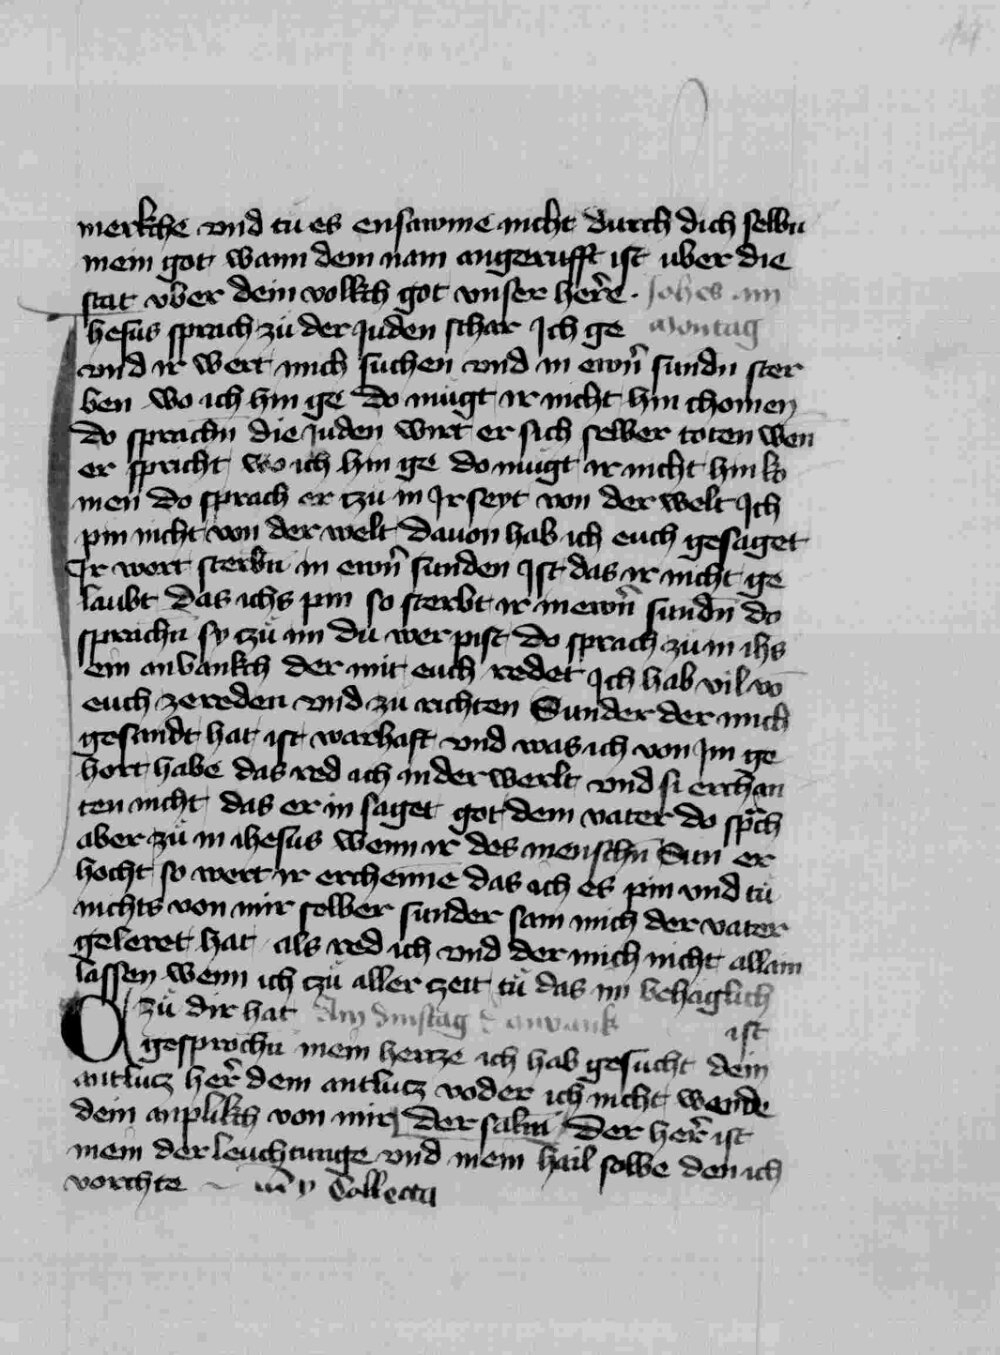 merkche vnd tu es ensawme nicht durch dich selbn
mein got wann dein nam angerufft ist uber die
stat vber dein volkch got vnser here . Johes am
hesus sprach zu der Juden schar Ich ge Montag
vnd ir wert mich suchen vnd in ewrn sundn ster
ben wo ich hin ge do mugt ir nicht hin chomen
do sprachn die Juden wirt er sich selber toten wen
er spricht wo ich hin ge do mugt ir nicht hin ko
men do sprach er czu in Ir seyt von der welt Ich
pin nicht von der welt dauon hab ich euch gesaget
Ir wert sterbn in ewrn sunden Ist das ir nicht ge
laubt das ichs pin so sterbt ir in ewrn sundn do
sprachn sy czu im du wer pist do sprach zu in ihs
ein anvankch der mit euch redet Ich hab vil vo
euch zereden vnd zu richten Sunder der mich
gesandt hat ist warhaft vnd was ich von Im ge
hort habe das red ich in der werlt vnd si erchan
ten nicht das er in saget got dem vater do sprch
aber zu in ihesus wenn ir des menschn Sun er
hocht so wert ir erchenne das ich es pin vnd tu
nichts von mir selber sunder sam mich der vater
geleret hat als red ich vnd der mich nicht allain
lassen wenn ich czu aller czeit tu das im behaglich
zu dir hat Am dinstag d anvank ist
gesprochn mein hercze ich hab gesucht dein
antlucz her dein antlucz voder ich nicht wende
dein anplikch von mir der salm Der her ist
mein derleuchtunge vnd mein hail selbe den ich
vorchte Collecta